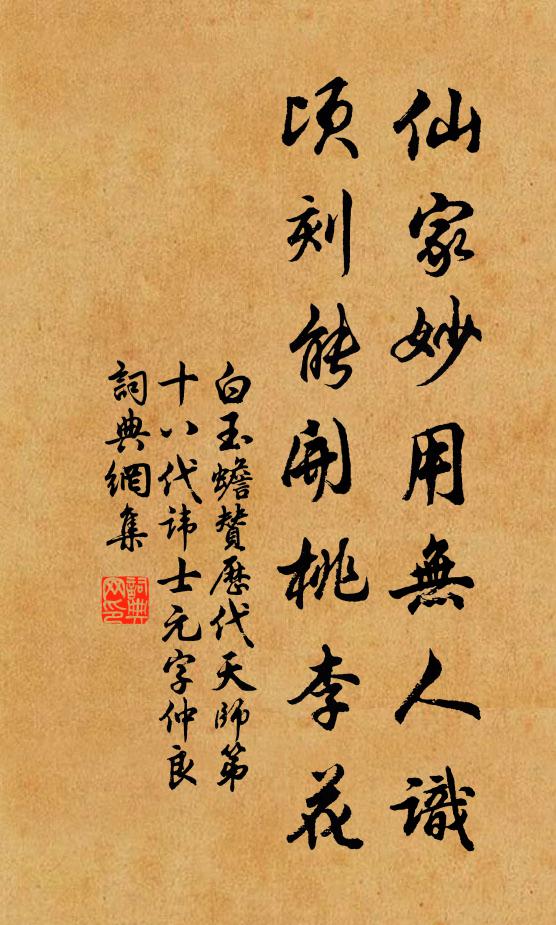 仙家妙用無人識
頃刻能開桃李花
白玉蟾贊歷代天師第
十八代諱士元字仲良
詞典網集
詞典網印